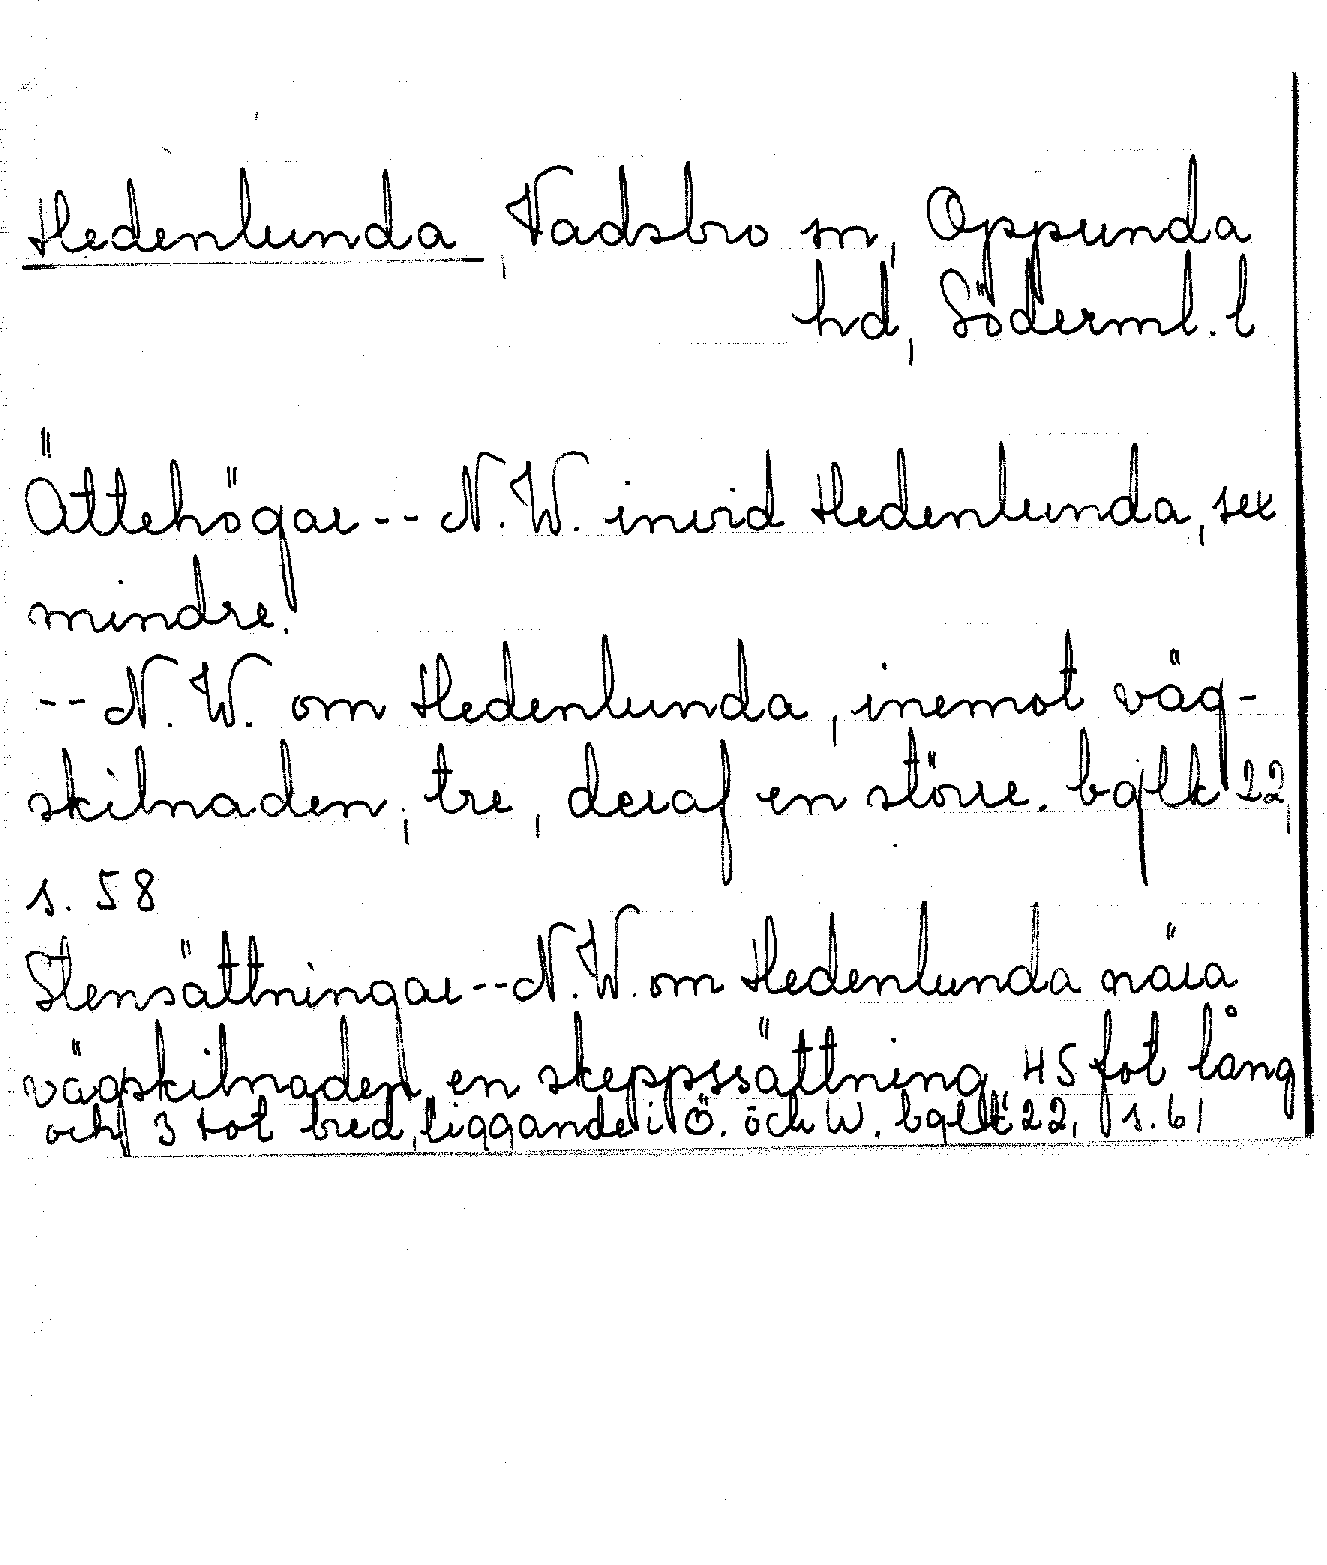 Hedenlunda, Vadsbro sn, Oppunda
hd, Söderml. l
Ättehögar -- N.W. invid Hedenlunda, sex
mindre.
-- N.W. om Hedenlunda, inemot väg-
skilnaden; tre, deraf en större. bglk 22,
s. 58
Stensättningar -- N.W. om Hedenlunda nära
vägskilnaden, en skeppssättning, 45 fot lång
och 3 fot bred, liggande i Ö. och W. bglk 22, s. 61